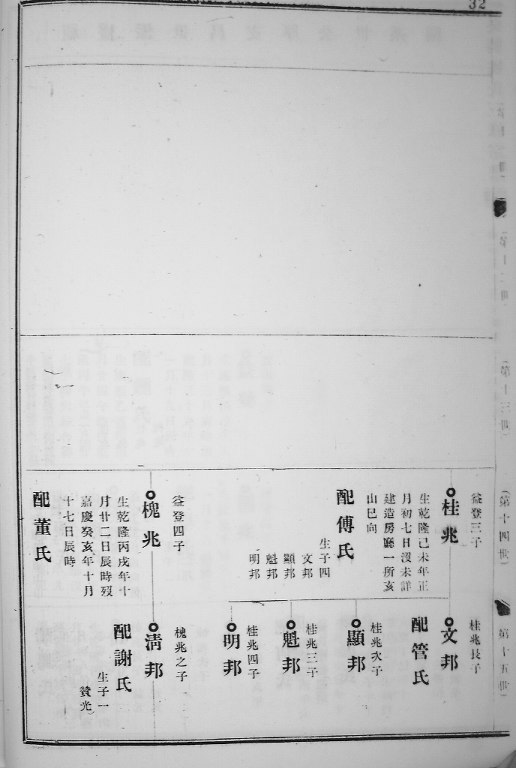 32
第十三世
第十四世
益登三子
桂兆
生乾隆己未年正
月初七日沒未詳
建造房廳一所亥
山巳向
配傅氏
生子四
文邦
顯邦
魁邦
明邦
益登四子
槐兆
生乾隆丙戌年十
月廿二日辰時歿
嘉慶癸亥年十月
十七日辰時
配董氏
第十五世
桂兆長子
文邦
配管氏
桂兆次子
顯邦
桂兆三子
魁邦
桂兆四子
明邦
槐兆之子
清邦
配謝氏
生子一
贊光